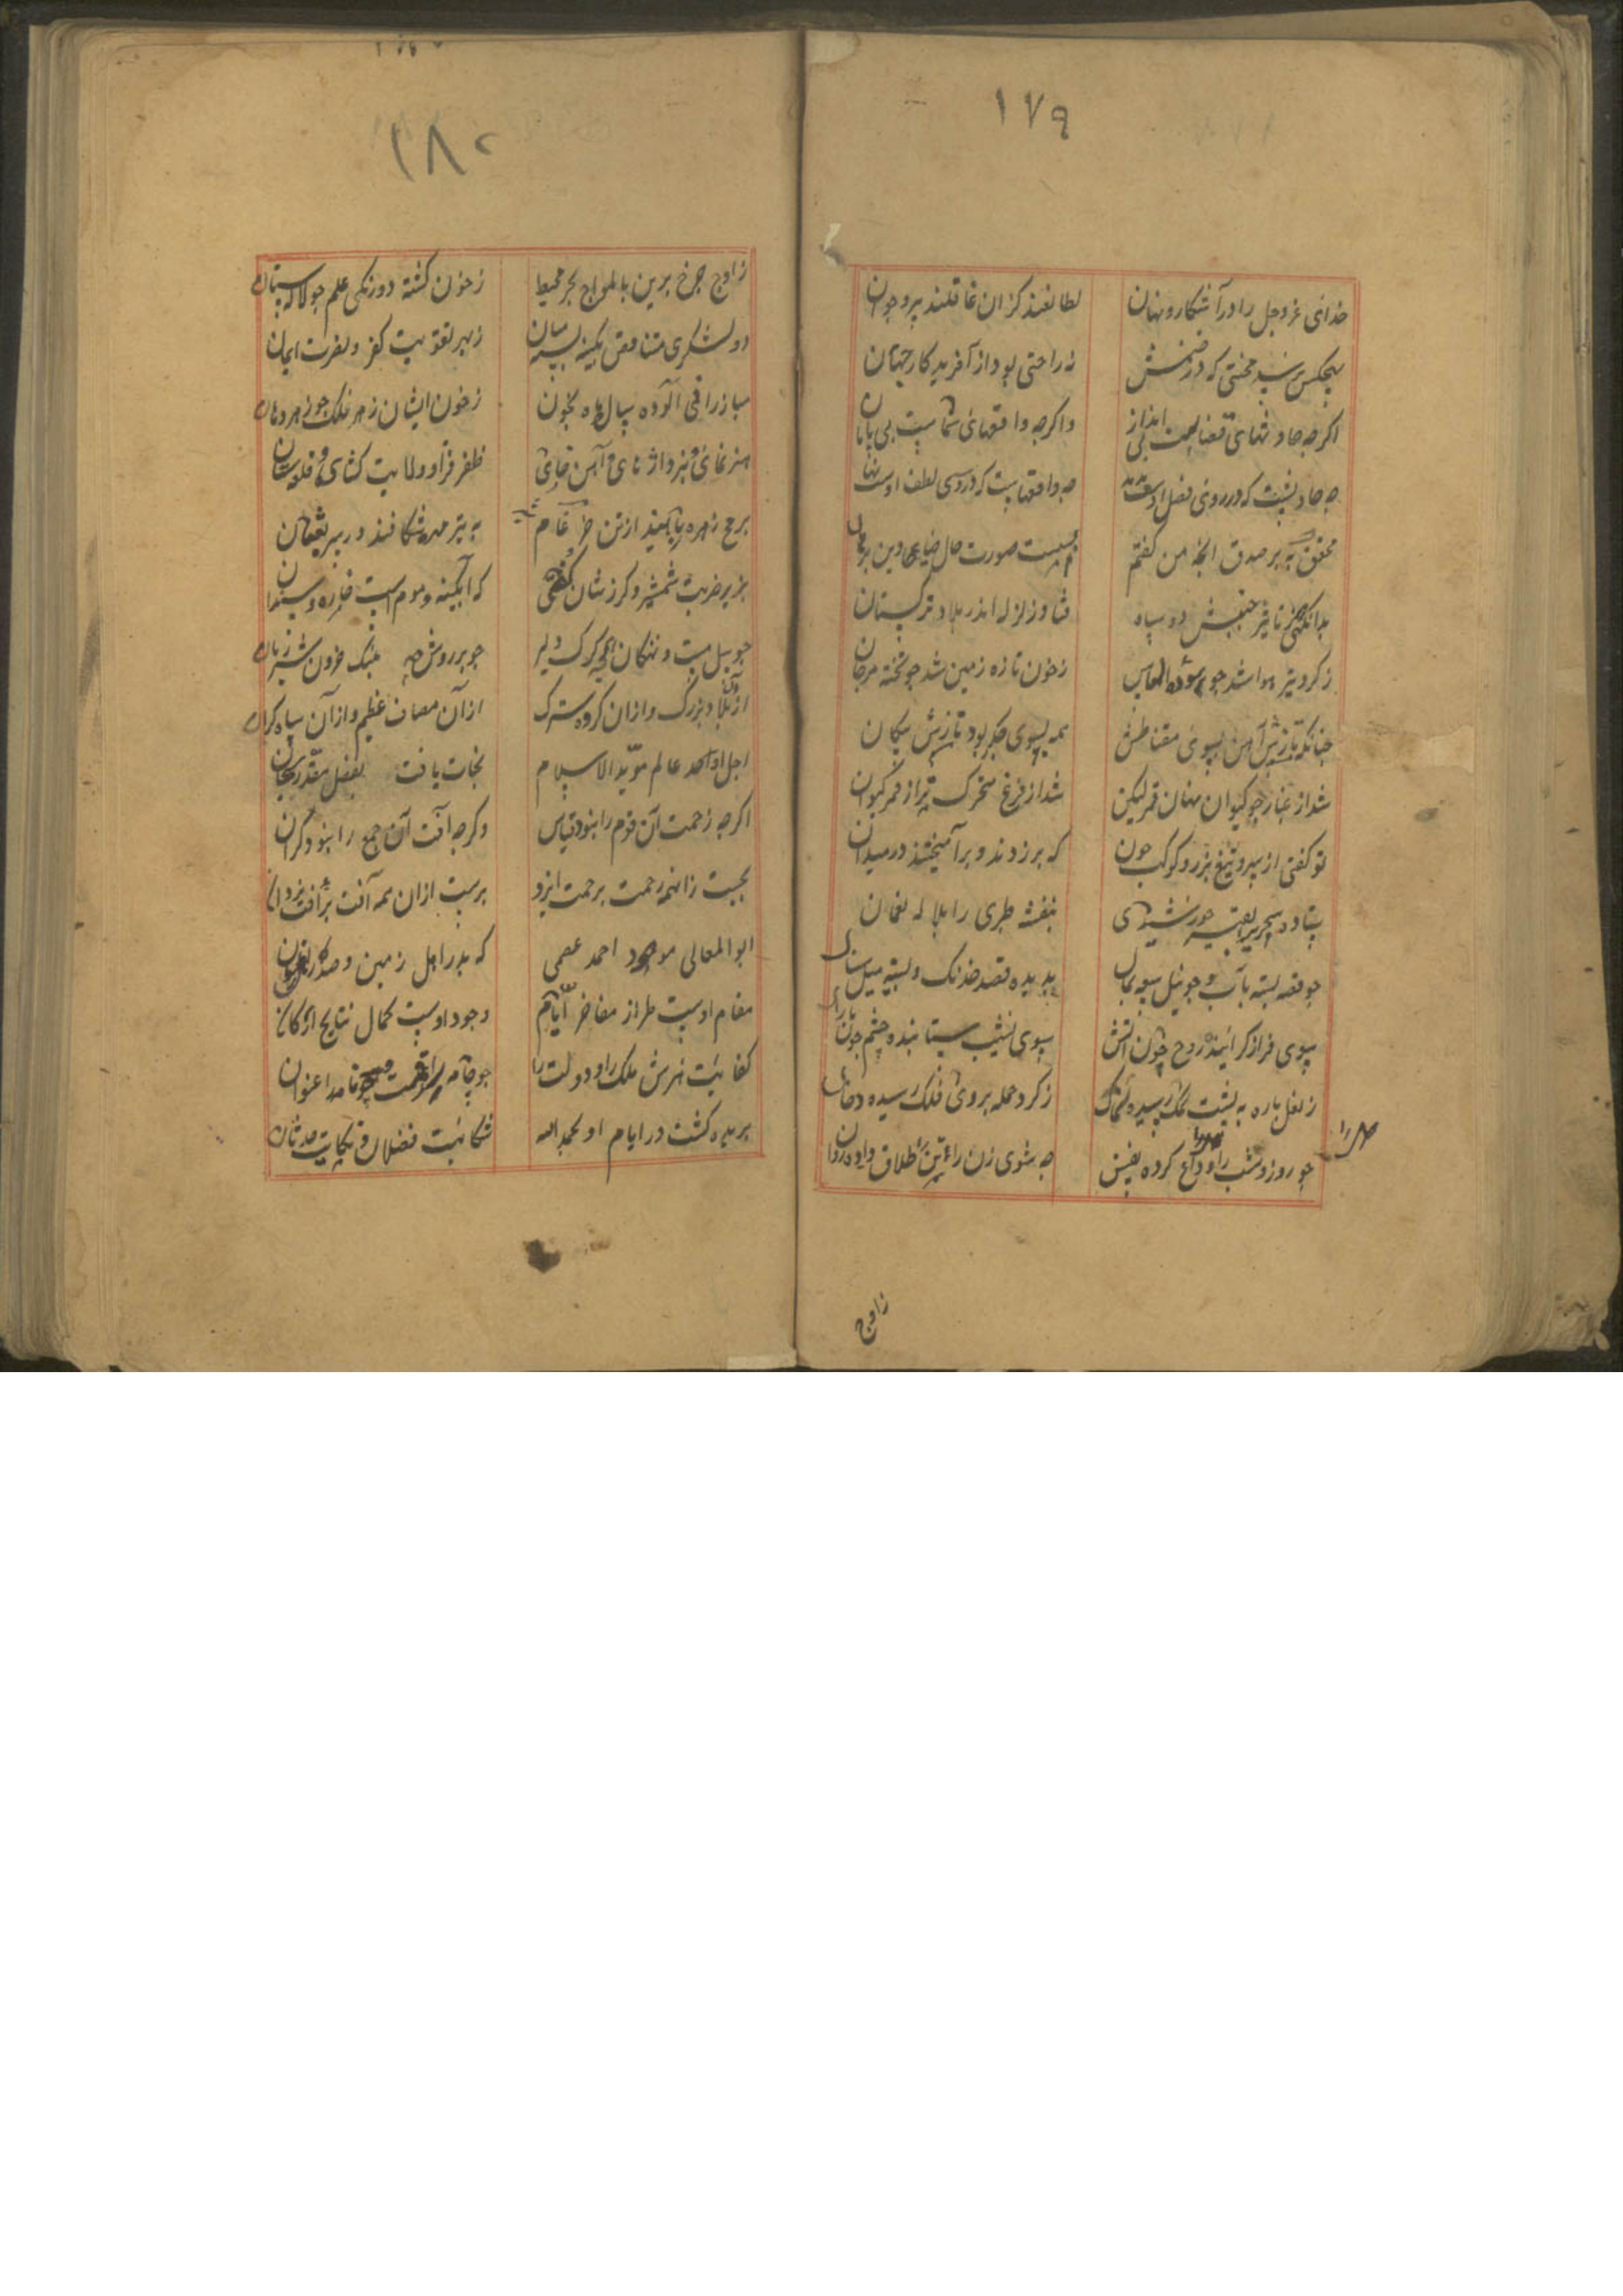 ١٧٩
خدای عز وجل را در آشکار و نهان
لطایفند کزان غافلند پیر و جوان
بهیچکس نرسید محنتی که در ضمنش
نه راحتی بود از آفریدکار جهان
اکرچه حادثهای قضاست بی انداز
واکرچه واقعهای شماست بی پایان
چه حادثیست که در روی فضل او
چه واقعهاست که در وی لطف اوست نهان
محقق به بر صدق انچه من کفتم
بسست صورت حال ضیای دین برهان
بدانکهی که ز تاثیر جنبش دو سپاه
فتاد زلزله اندر بلاد ترکستان
ز کرد تیره هوا شد چو سوده الماس
ز خون تازه زمین شد چو تخته مرجان
چنانکه تازش آهن بسوی مقناطیس
همه بسوی جکر بود تازش پیکان
شد از غبار چو کیوان نهان قمر لیکن
شد از فزع متحرک تر از قمر کیوان
تو کفتی از سپر و تیغ بزر و کوکب چون
که بر زدند و برآمیختند در میدان
بنفشه طبری را بلاله نعمان
بدیده قصد خدنک و بسینه میل سنان
بسوی فراز کراینده روح چون آتش
بسوی نشیب ستابنده خشم چون باران
ز نعل باره به پشت سمک رسیده
ز کرد حمله بروی فلک رسیده دخان
چو روز و شب را وداع کرده بنفس
چه شوی زن را طلاق داده روان
زاوج
١٨٠
زاوج چرخ برین با امواج بحر محیط
ز خون کشته دو رنکی علم چو لاله ستان
دو لشکری متنافی بکینه بسته میان
ز بهر تقویت کفر و نصرت ایمان
مبارزانی آلوده یال باره بخون
ز خون ایشان زهر فلک چو زهر دهان
هنر نمای و نبرد آزمای و آهن خای
ظفر فزا و ولایت کشای و قلعه ستان
برمح زهره ربایند از تن ضرغام
به تیر مهره شکافند در سر ثعبان
بزیر ضربت شمشیر و کرزشان کفتی
که آبکینه و موم است خاره و سندان
چو پیل مست و نهنکان همچو کرک دلیر
چو بر روش چه پلنک حرون شیر ژیان
از آن بلاد بزرک و از آن کروه سترک
از آن مصاف عظیم و از آن سپاه کران
اجل اوحد عالم مؤید الاسلام
نجات یافت بفضل مقدر سبحان
اکرچه زحمت آن قوم را نبود قیاس
وکرچه آفت آن جمع را نبود کران
بجست زانهمه زحمت برحمت ایزد
برست ازان همه آفت برافت یزدان
ابوالمعالی احمد عصمی
که بدر اهل زمین و صدر
مقام اوست طراز مفاخر ایام
وجود اوست کمال نتایج ارکان
کفایت هنرش ملک را و دولت را
چو جامه و چو نامه را عنوان
بریده کشت در ایام او بحمدالله
شکایت فضلا و نکایت حدثان